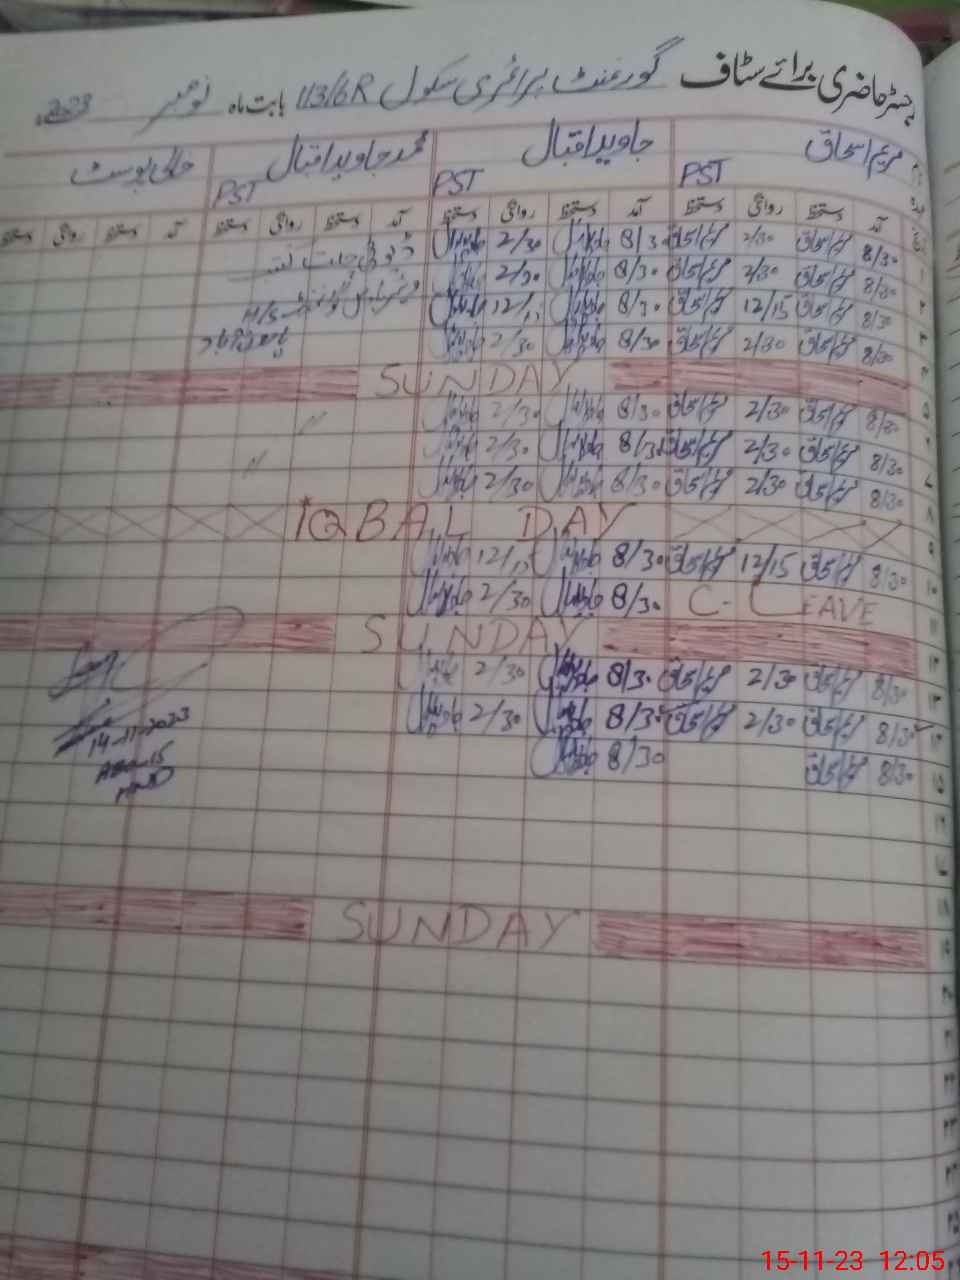 رجسٹر حاضری برائے سٹاف گورنمنٹ پرائمری سکول 113/6R بابت ماہ نومبر 2023
مریم اسحاق جاوید اقبال محمد جاوید اقبال خالی پوسٹ
PST PST PST
آمد دستخط روانگی دستخط آمد دستخط روانگی دستخط آمد دستخط روانگی دستخط آمد دستخط روانگی دستخط
۱ 8/30 مریم اسحاق 2/30 مریم اسحاق 8/30 جاوید اقبال 2/30 جاوید اقبال
۲ 8/30 مریم اسحاق 2/30 مریم اسحاق 8/30 جاوید اقبال 2/30 جاوید اقبال
۳ 8/30 مریم اسحاق 12/15 مریم اسحاق 8/30 جاوید اقبال 12/15 جاوید اقبال H/S
۴ 8/30 مریم اسحاق 2/30 مریم اسحاق 8/30 جاوید اقبال 2/30 جاوید اقبال
۵ SUNDAY
۶ 8/30 مریم اسحاق 2/30 مریم اسحاق 8/30 جاوید اقبال 2/30 جاوید اقبال
۷ 8/30 مریم اسحاق 2/30 مریم اسحاق 8/30 جاوید اقبال 2/30 جاوید اقبال
۸ 8/30 مریم اسحاق 2/30 مریم اسحاق 8/30 جاوید اقبال 2/30 جاوید اقبال
۹ IQBAL DAY
۱۰ 8/30 مریم اسحاق 12/15 مریم اسحاق 8/30 جاوید اقبال 12/15 جاوید اقبال
۱۱ C-LEAVE 8/30 جاوید اقبال 2/30 جاوید اقبال
۱۲ SUNDAY
۱۳ 8/30 مریم اسحاق 2/30 مریم اسحاق 8/30 جاوید اقبال 2/30 جاوید اقبال
۱۴ 8/30 مریم اسحاق 2/30 مریم اسحاق 8/30 جاوید اقبال 2/30 جاوید اقبال 14-11-2023
۱۵ 8/30 مریم اسحاق 8/30 جاوید اقبال
۱۶
۱۷
۱۸
۱۹ SUNDAY
۲۰
۲۱
۲۲
۲۳
۲۴
۲۵
15-11-23 12:05